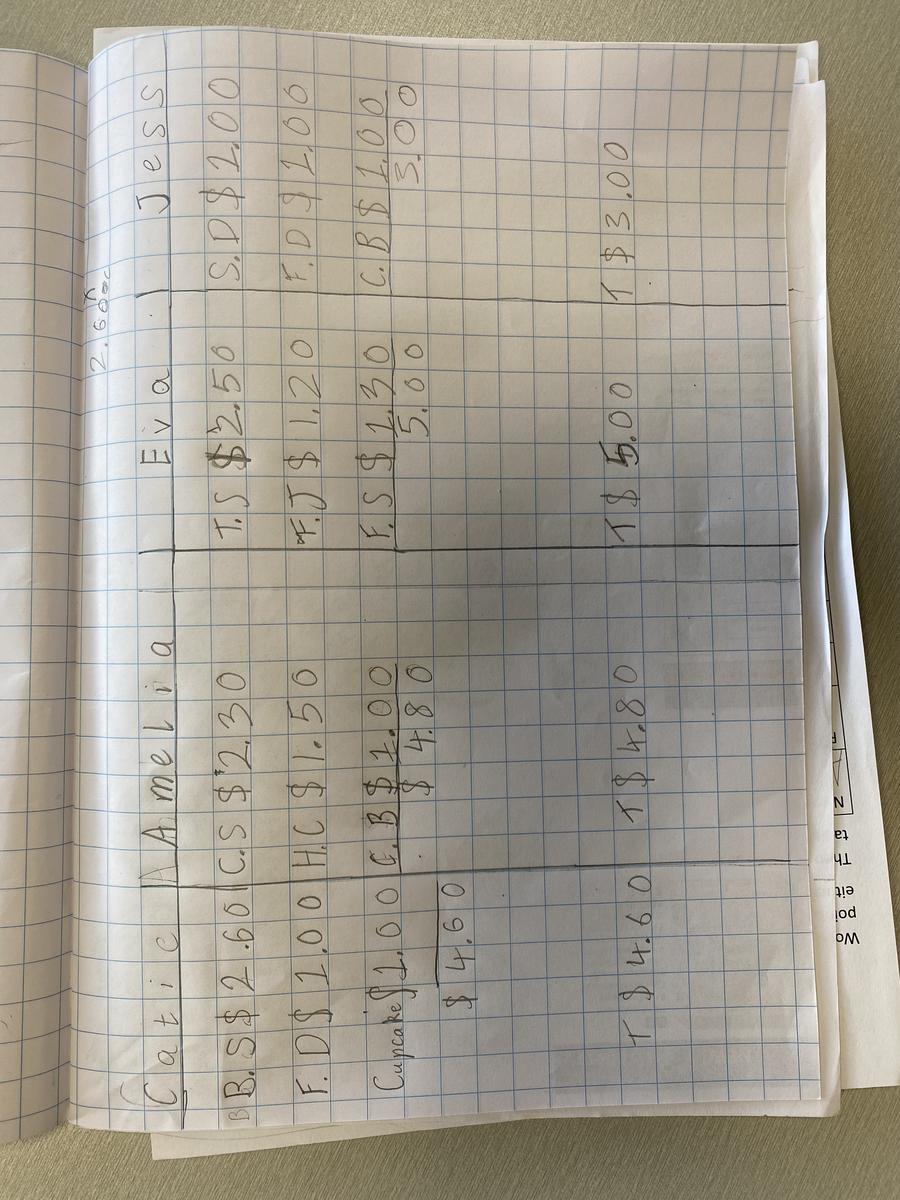 2.60
Catie Amelia Eva Jess
B.S $2.60 C.S $2.30 T.S $2.50 S.D $1.00
F.D $1.00 H.C $1.50 F.J $1.20 F.D $1.00
Cupcake $1.00 C.B $1.00 F.S $1.30 C.B $1.00
$4.60 $4.80 5.00 3.00
T $4.60 T $4.80 T $5.00 T $3.00